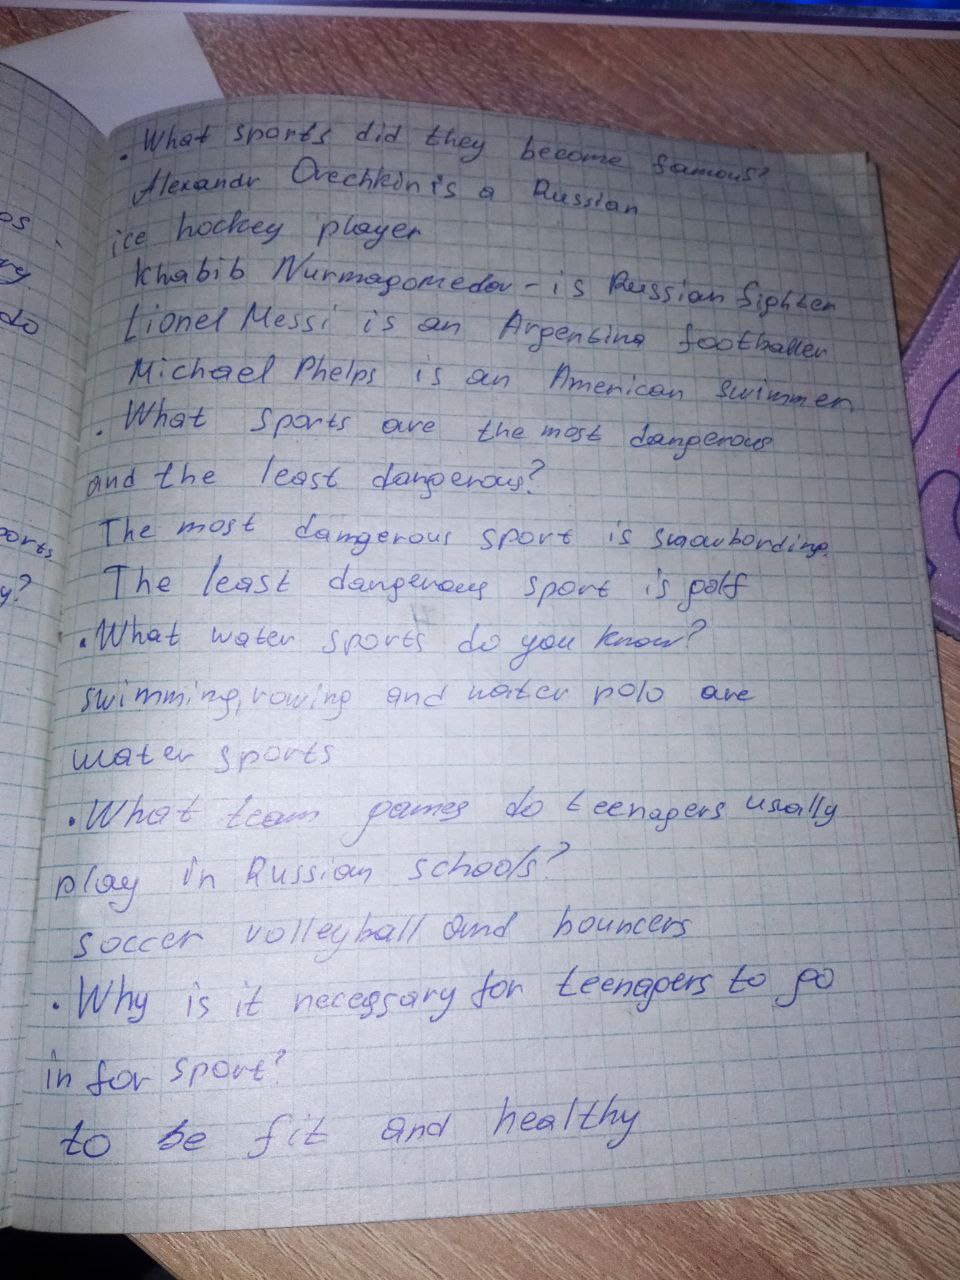 os -
ry
do
ports
y?
. What sports did they become famous?
Alexandr Ovechkin is a Russian
ice hockey player
Khabib Nurmagomedov - is Russian fighter
Lionel Messi is an Argentina footballer
Michael Phelps is an American swimmer
. What sports are the most dangerous
and the least dangerous?
The most dangerous sport is snowbording.
The least dangerous sport is golf
. What water sports do you know?
swimming, rowing and water polo are
water sports
. What team games do teenagers usually
play in Russian schools?
soccer volleyball and bouncers
. Why is it necessary for teenagers to go
in for sport?
to be fit and healthy